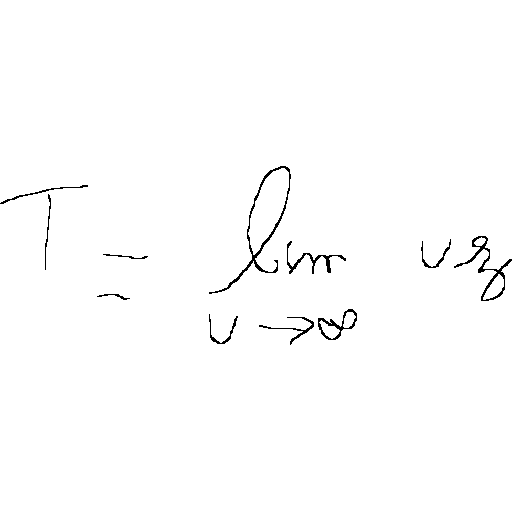 T = lim_{v → ∞} v z